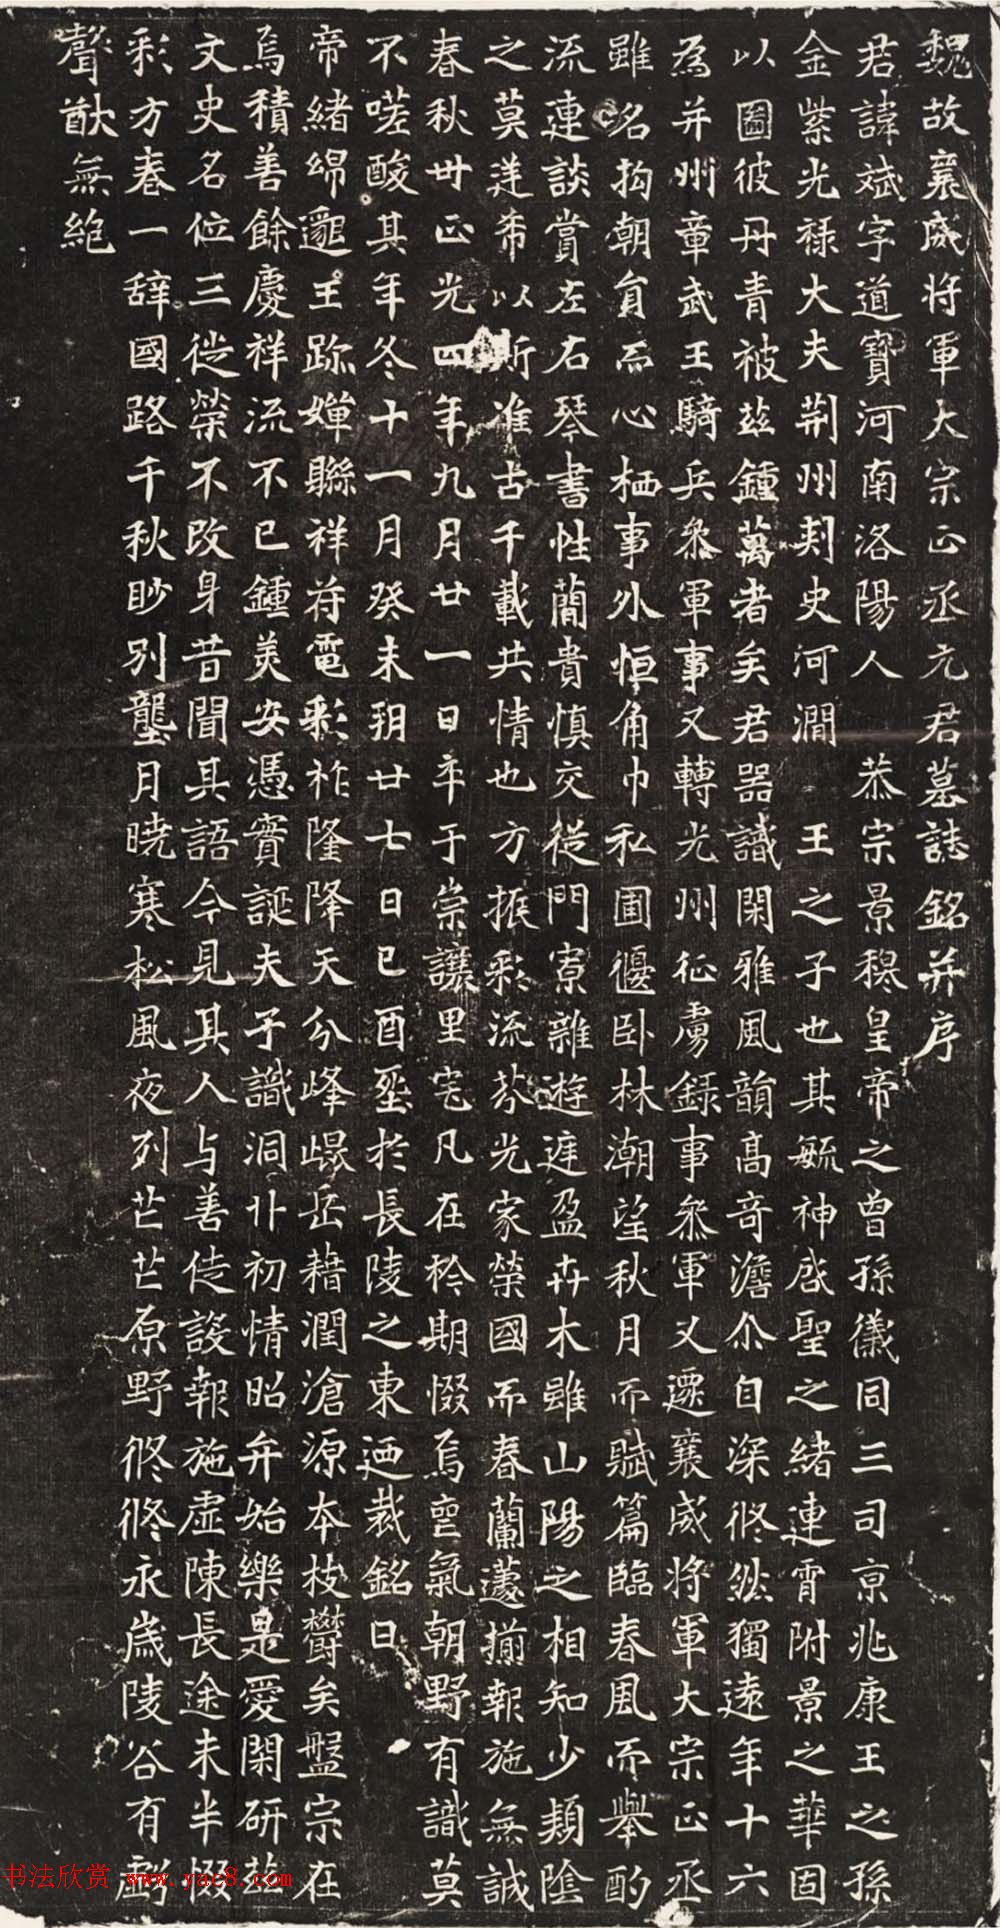 魏故襄威將軍大宗正丞元君墓誌銘并序
君諱斌字道寶河南洛陽人 恭宗景穆皇帝之曾孫儀同三司京兆康王之孫
金紫光祿大夫荊州刾史河澗 王之子也其毓神啓聖之緒連霄附景之華固
以圖彼丹青被茲鍾萬者矣君器識閑雅風韻高奇澹尒自深倏然獨遠年十六
為并州章武王騎兵參軍事又轉光州征虜錄事參軍又遷襄威將軍大宗正丞
雖名拘朝員而心栖事外恒角巾私圃偃卧林潮望秋月而賦篇臨春風而舉酌
流連談賞左右琴書性簡貴慎交從門寮雜遊遊盈卉木雖山陽之相知少類陰
之莫逆希以斯准古千載共情也方振彩流芬光家榮國而春蘭邊搦報施無誠
春秋卅正光四年九月廿一日卒于崇讓里宅凡在衿期惙焉壹氣朝野有識莫
不嗟酸其年冬十一月癸未朔廿七日己酉壆於長陵之東迺裁銘曰
帝緒綿邈王跡嬋聯祥符電彩祚隆降天分峰崐岳藉潤滄源本枝欝矣盤宗在
焉積善餘慶祥流不已鍾美安憑實誕夫子識洞卝初情昭弁始樂是愛閑研茲
文史名位三徙榮不改身昔聞其語今見其人与善徒設報施虛陳長途未半惙
彩方春一辞國路千秋眇別壟月曉寒松風夜列芒芒原野倏倏永歲陵谷有虧
聲猷無絕
书法欣赏 www.yac8.com